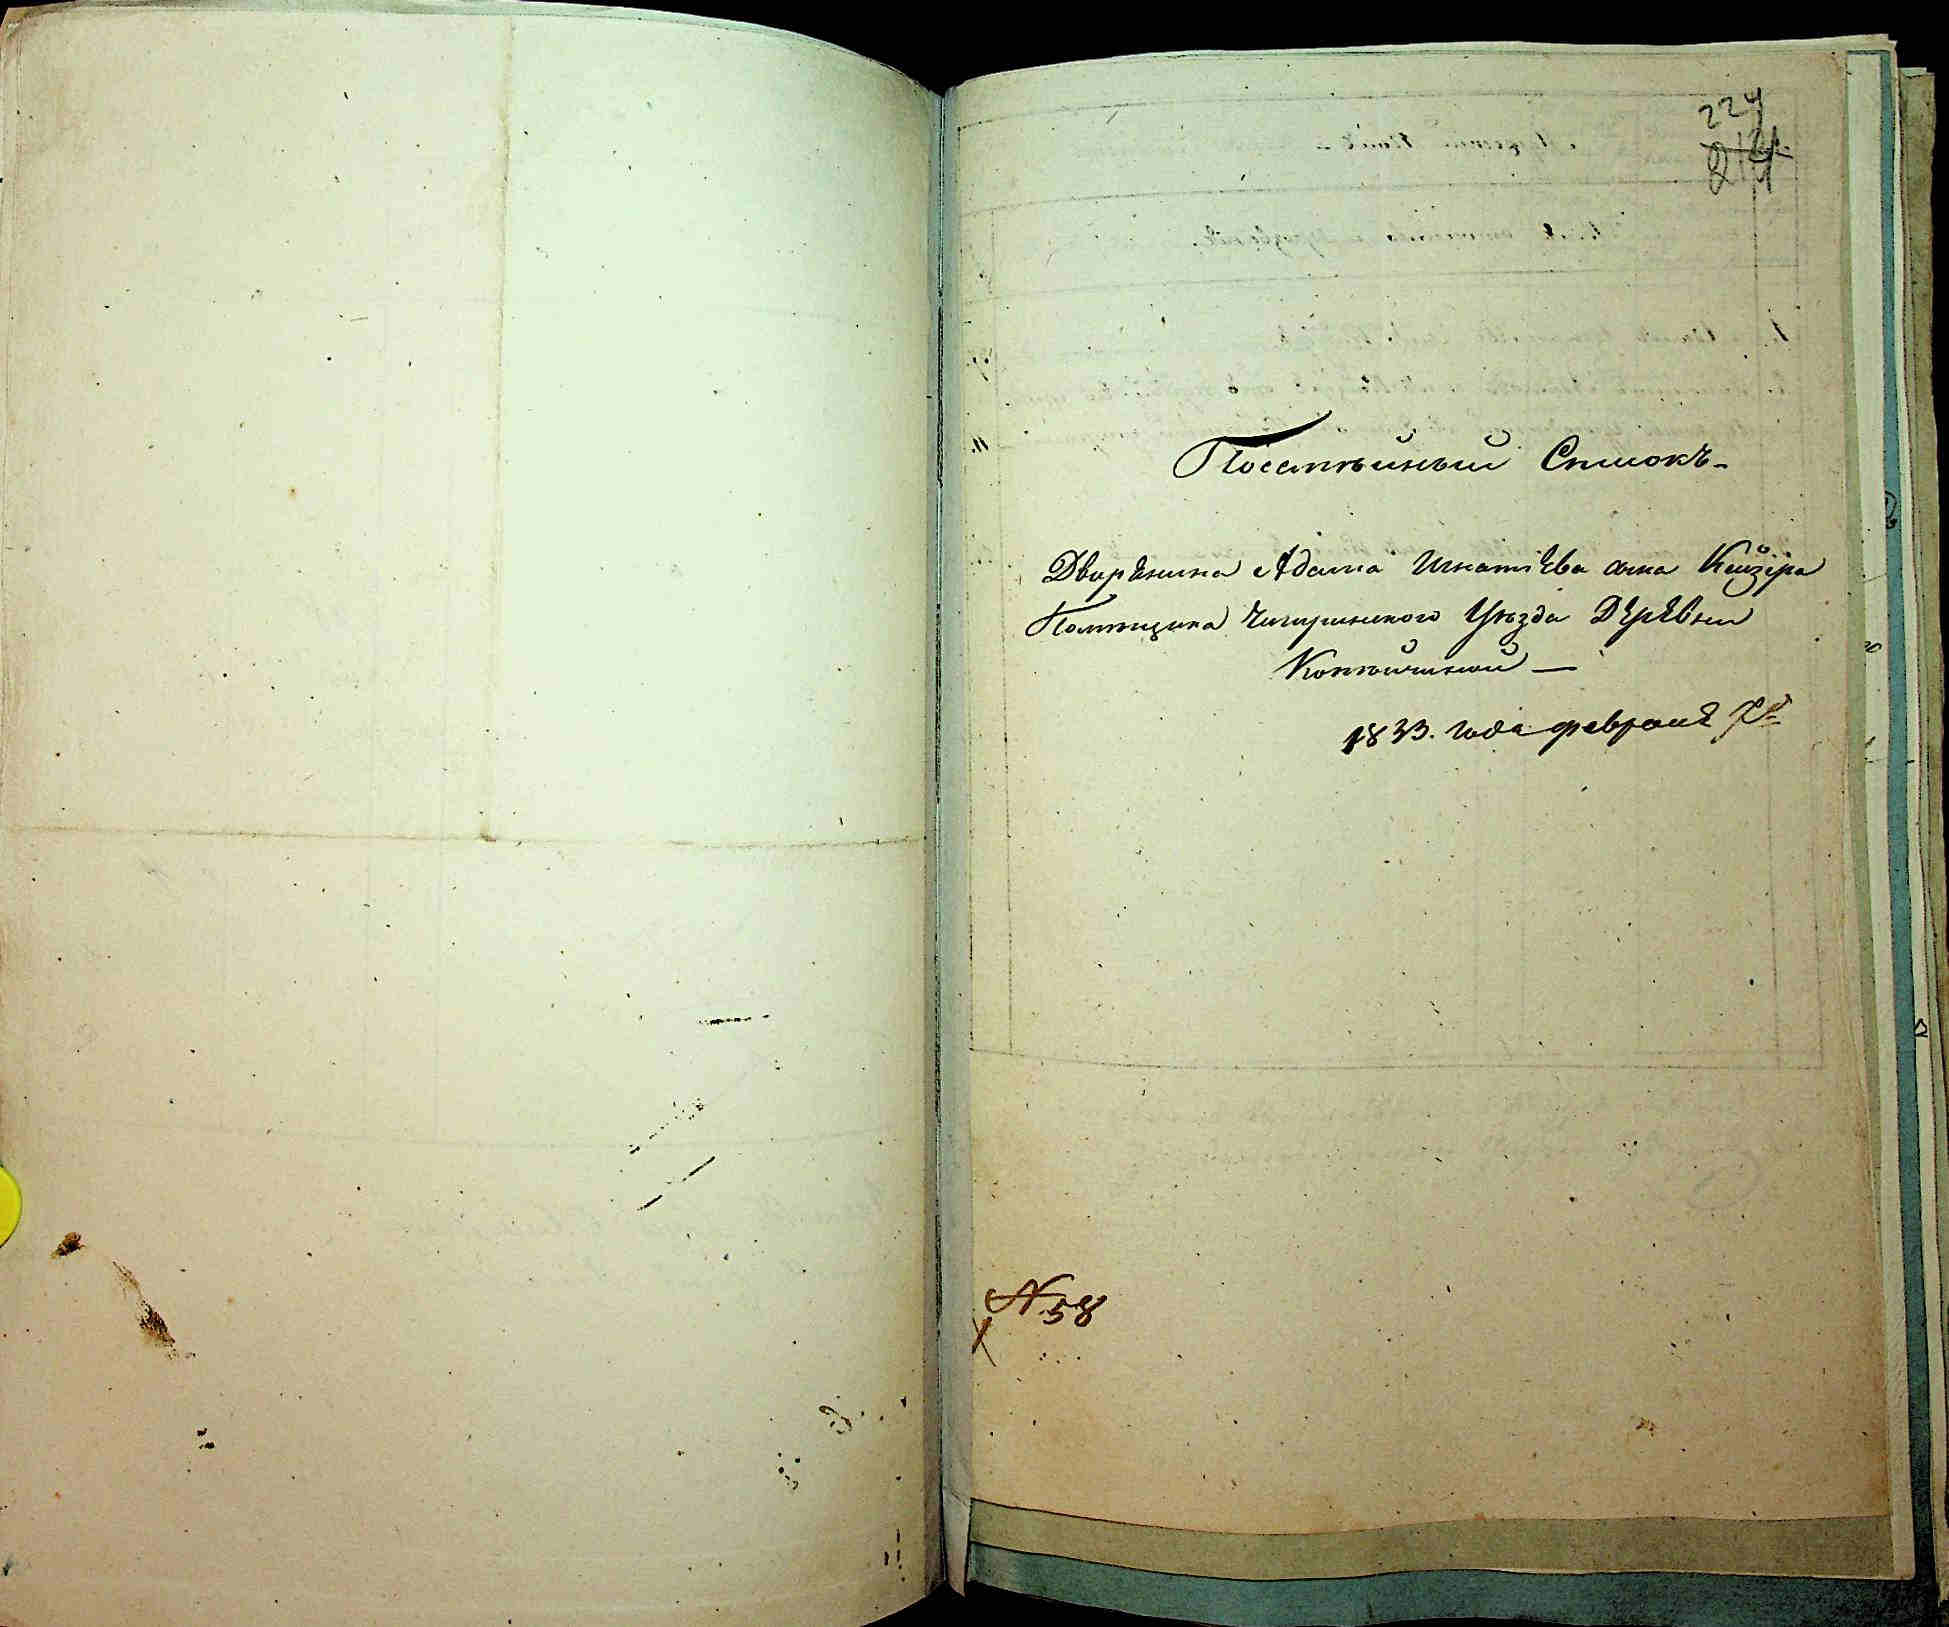 224
214
Посемѣйный Списокъ-
Дворенина Адама Игнатіева сына Кейзера
Помѣщика Чигиринского Уѣзда Деревни
Копѣйчиной —
1833. года февраля
N 58